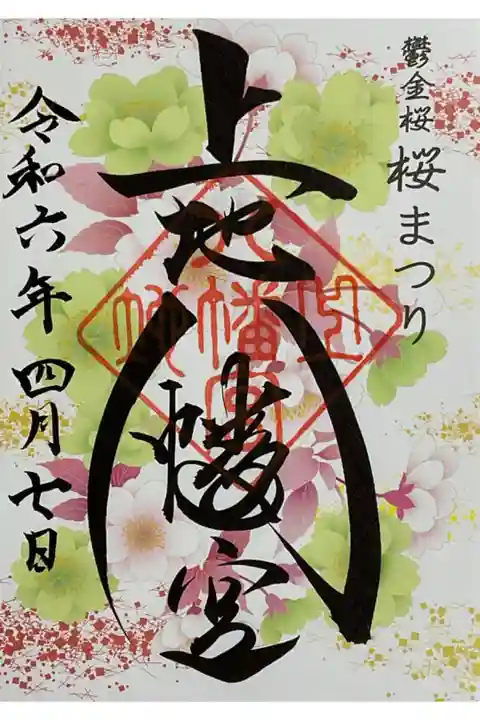 鬱金桜
桜まつり
上地八幡宮
令和六年四月七日